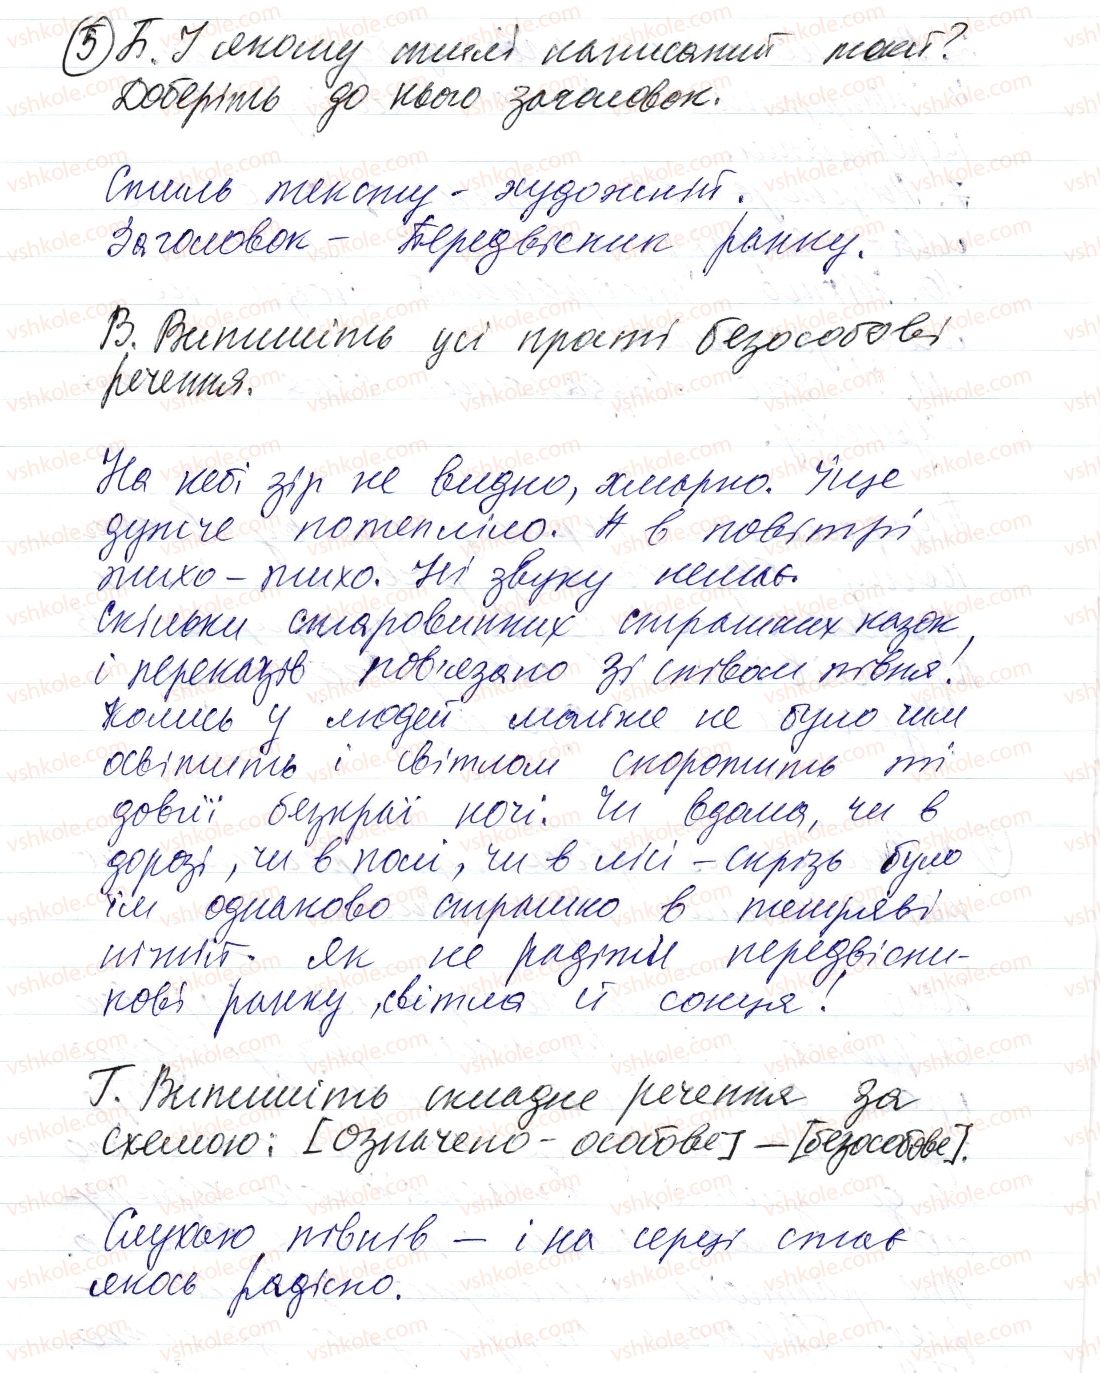 5 Б. У якому стилі написаний текст?
Доберіть до нього заголовок.
Стиль тексту - художній.
Заголовок - Передвісник ранку.
В. Випишіть усі прості безособові
речення.
На небі зір не видно, хмарно. Іще
дужче потепліло. А в повітрі
тихо - тихо. Ні звуку немає.
Скільки старовинних страшних казок
і переказів пов'язано зі співом півня!
Колись у людей майже не було чим
освітить і світлом скоротить ті
довгії безкраї ночі. Чи вдома, чи в
дорозі, чи в полі, чи в лісі - скрізь було
їм однаково страшно в темряві
нічній. Як не радіти передвісни-
кові ранку, світла й сонця!
Г. Випишіть складне речення за
схемою: [означено - особове] - [безособове].
Слухаю півнів - і на серці стає
якось радісно.